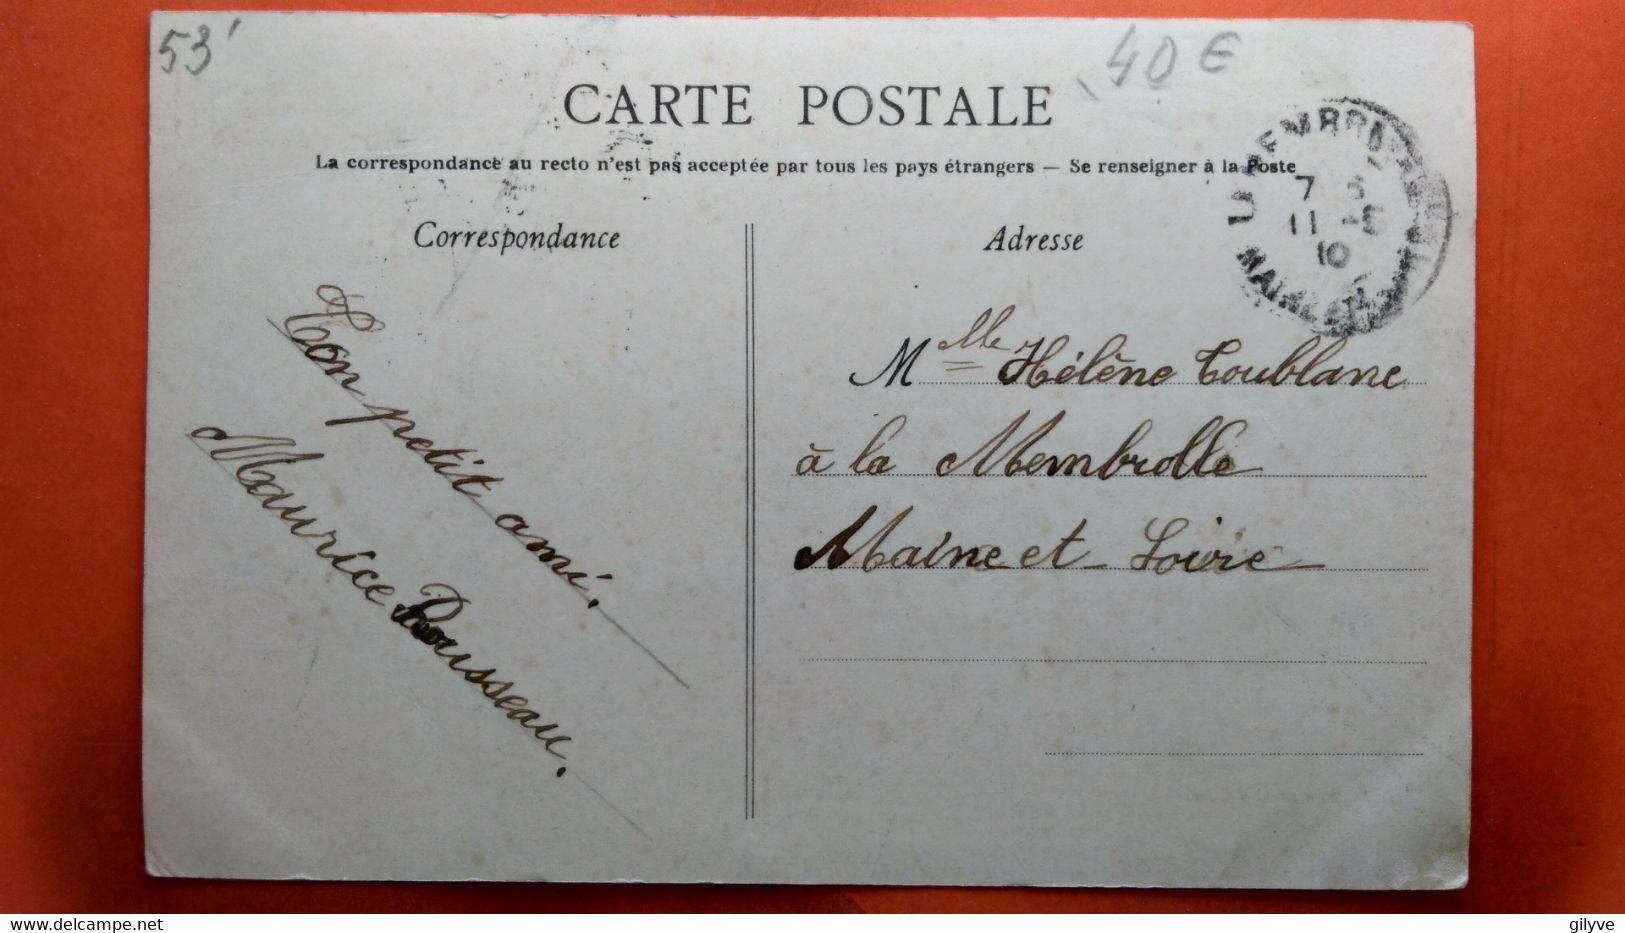 53'
40 €
CARTE POSTALE
La correspondance au recto n'est pas acceptée par tous les pays étrangers — Se renseigner à la Poste
Correspondance
Adresse
11 -5
10
Ton petit ami.
Maurice Rousseau.
Mlle Hélène Toublanc
à la Membrolle
Maine et Loire
gilyve